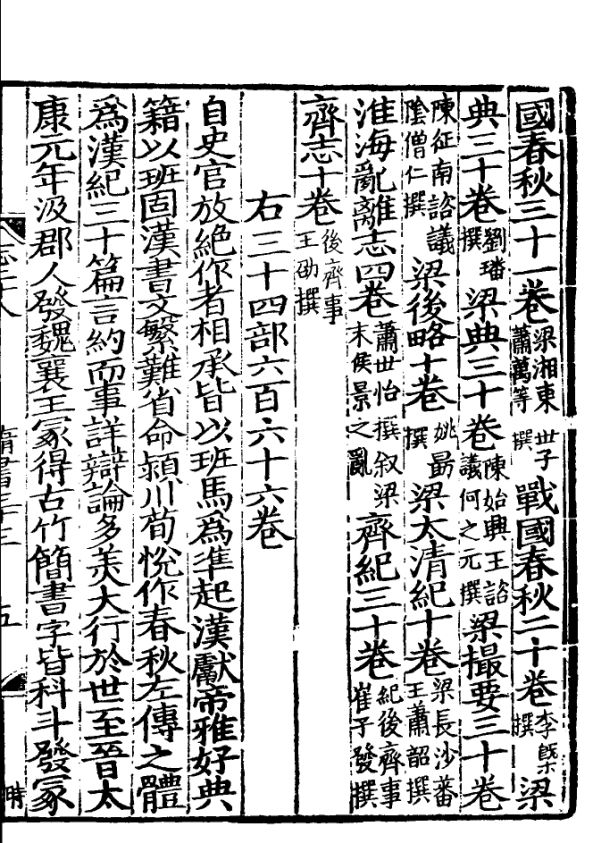 國春秋三十一卷梁湘東世子蕭萬等撰戰國春秋二十卷李槩撰梁
典三十卷劉璠撰梁典三十卷陳始興王諮議何之元撰梁撮要三十卷
陳征南諮議陰僧仁撰梁後略十卷姚最撰梁太清紀十卷梁長沙蕃王蕭韶撰
淮海亂離志四卷蕭世怡撰叙梁末侯景之亂齊紀三十卷紀後齊事崔子發撰
齊志十卷後齊事王劭撰
右三十四部六百六十六卷
自史官放絕作者相承皆以班馬為準起漢獻帝雅好典
籍以班固漢書文繁難省命潁川荀悅作春秋左傳之體
為漢紀三十篇言約而事詳辯論多美大行於世至晉太
康元年汲郡人發魏襄王冢得古竹簡書字皆科斗發冢
五